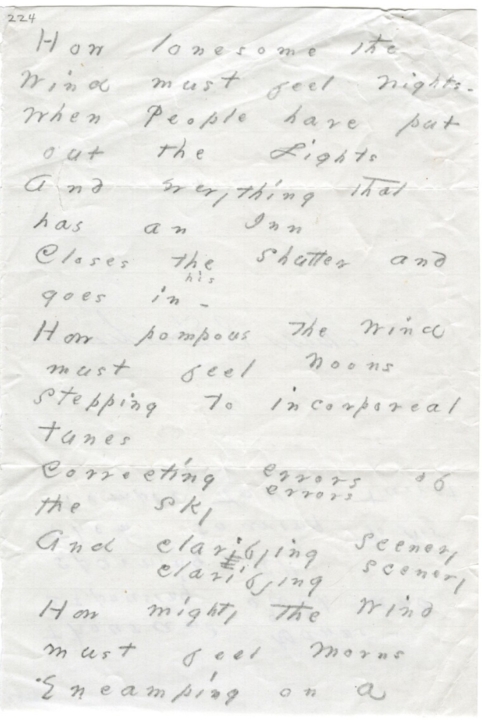 224
How lonesome the
Wind must feel Nights -
When People have put
out the Lights
And Everything that
has an Inn
Closes the Shutter and
his
goes in -
How pompous the Wind
must feel Noons
Stepping to incorporeal
Tunes
Correcting errors of
errors
the Sky
And clarifying Scenery
clarifying scenery
How mighty the Wind
must feel Morns
Encamping on a